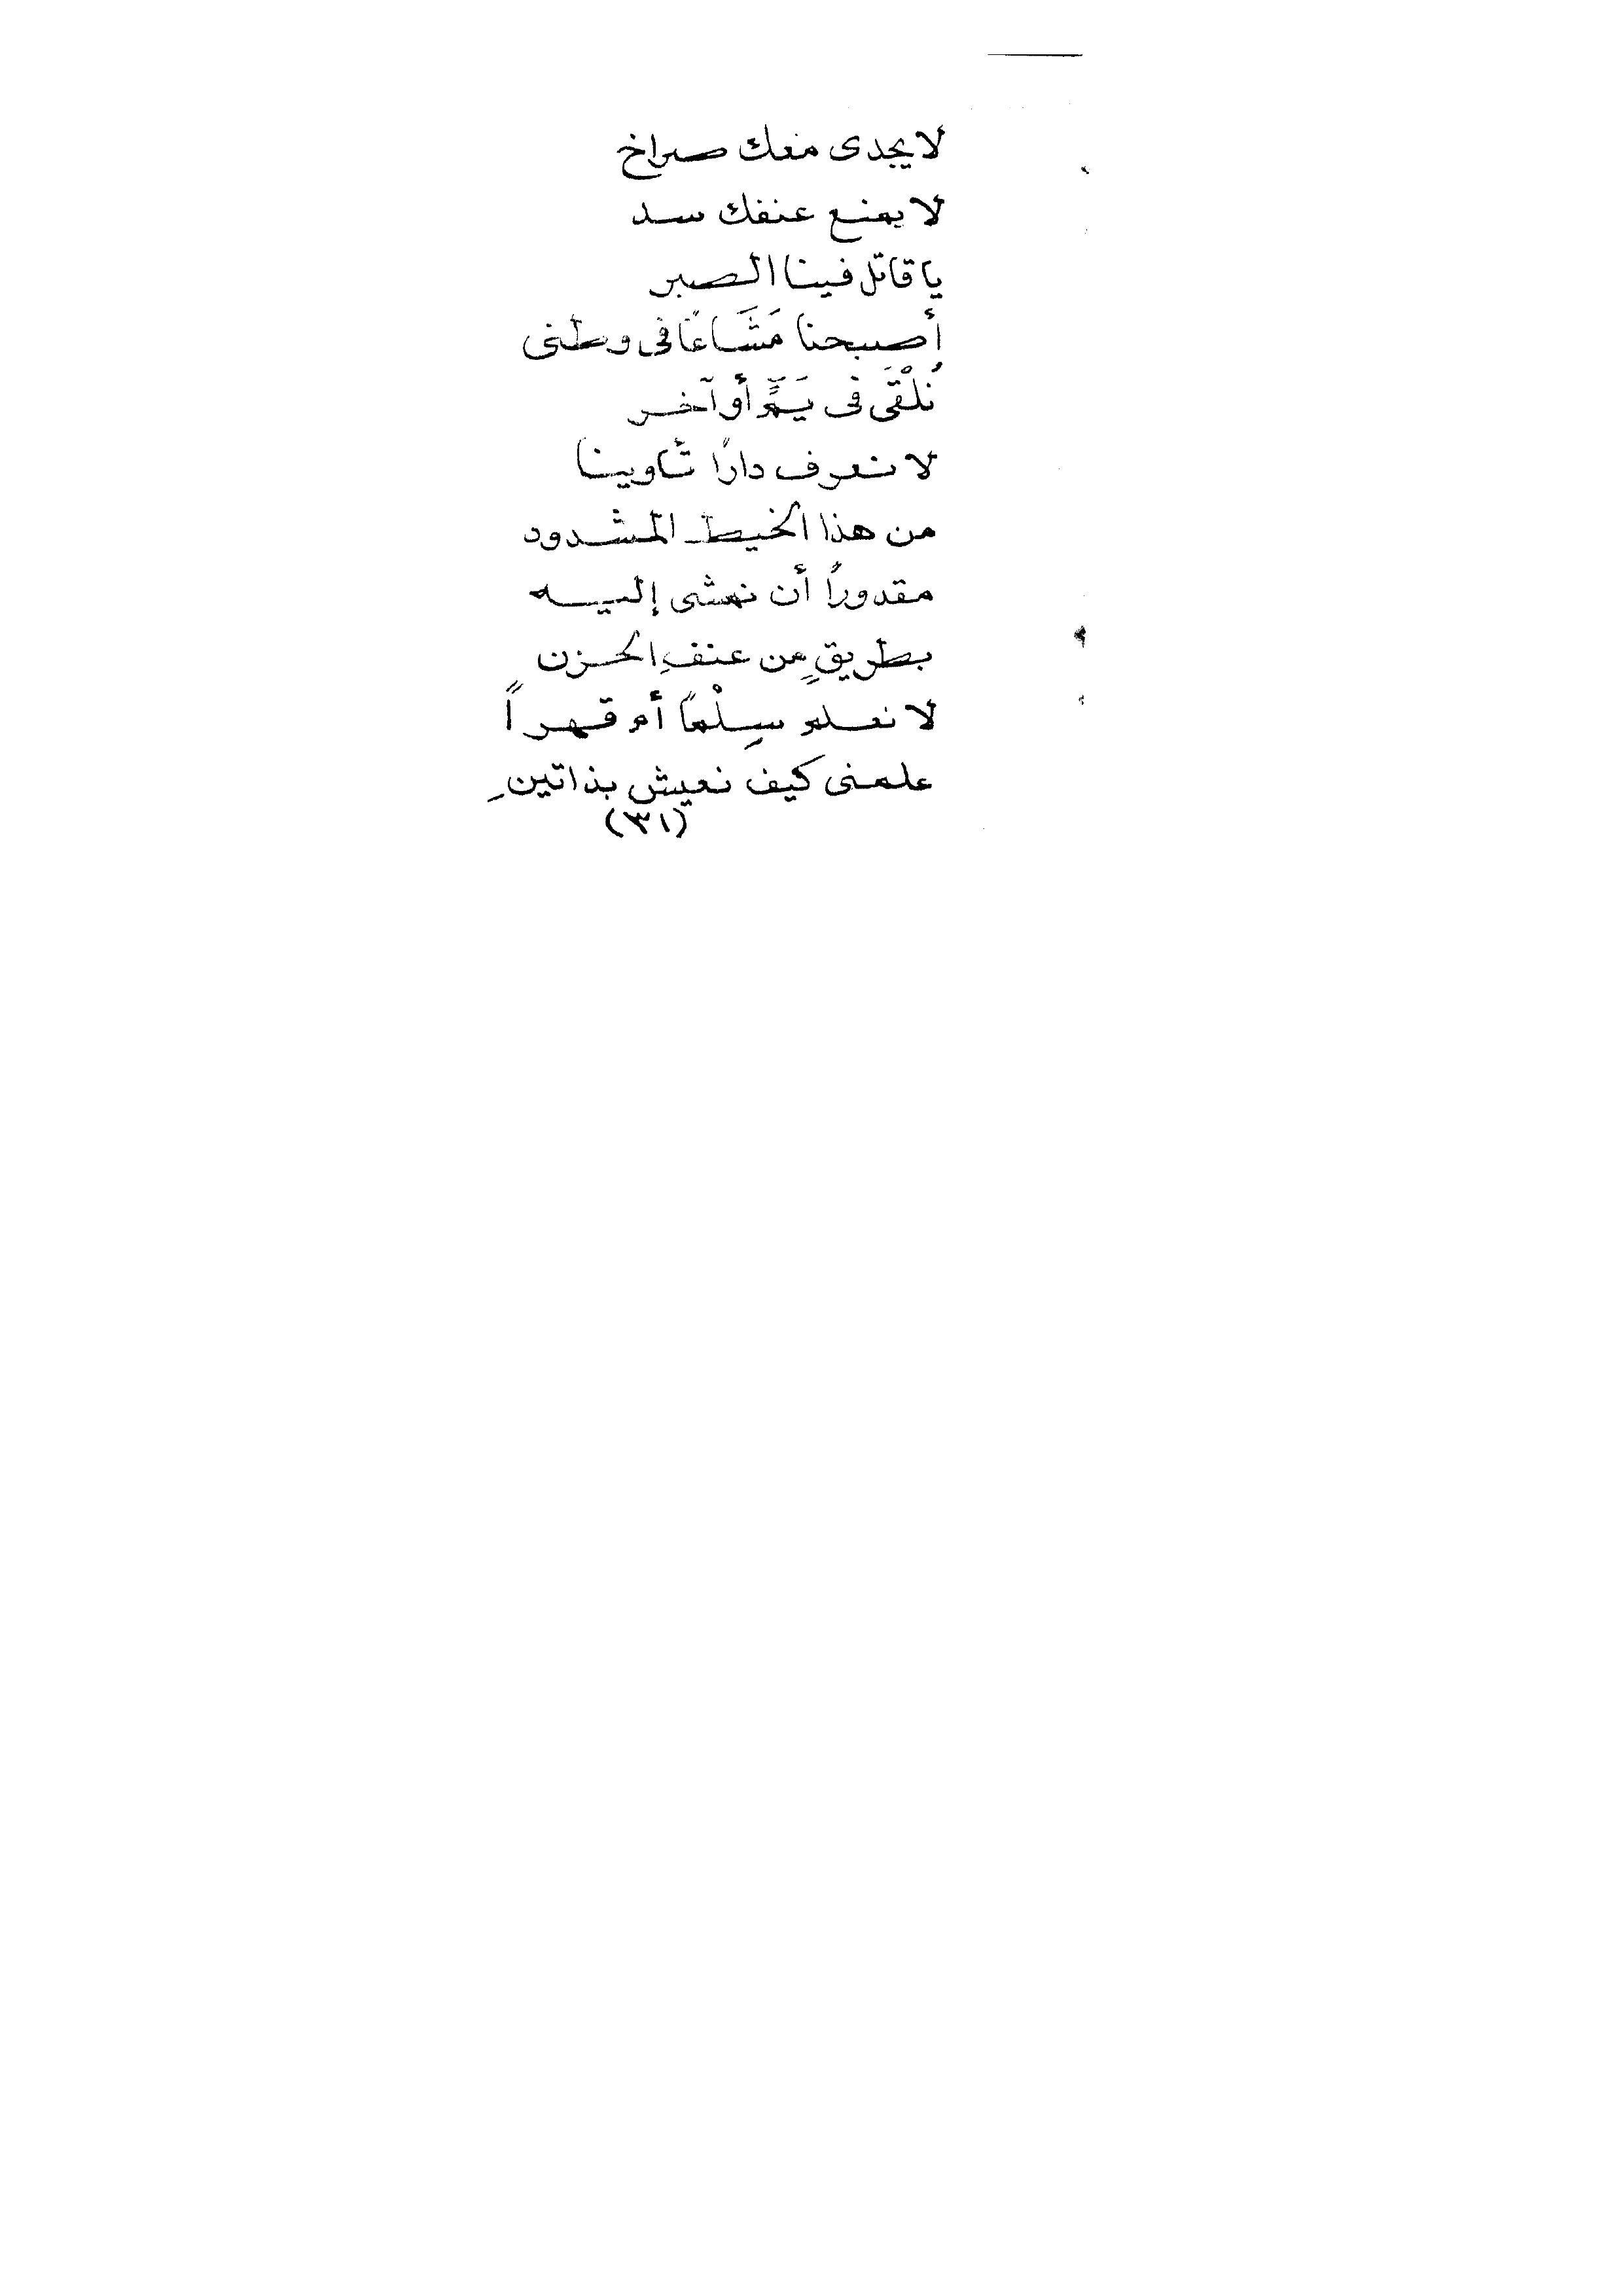 لا يجدى معك صراخ
لا يمنع عنفك سد
يا قاتل فينا الصبر
أصبحنا مَشَاعًا فى وطنى
نُلْقَى فى يَمٍّ أو آخر
لا نعرف دارًا تأوينا
من هذا الخيط المشدود
مقدورًا أن نمشى إليه
بطريقٍ من عنفِ الحزن
لا نعلم سِلْمًا أم قهراً
علمنى كيف نعيش بذاتينِ
(٣١)